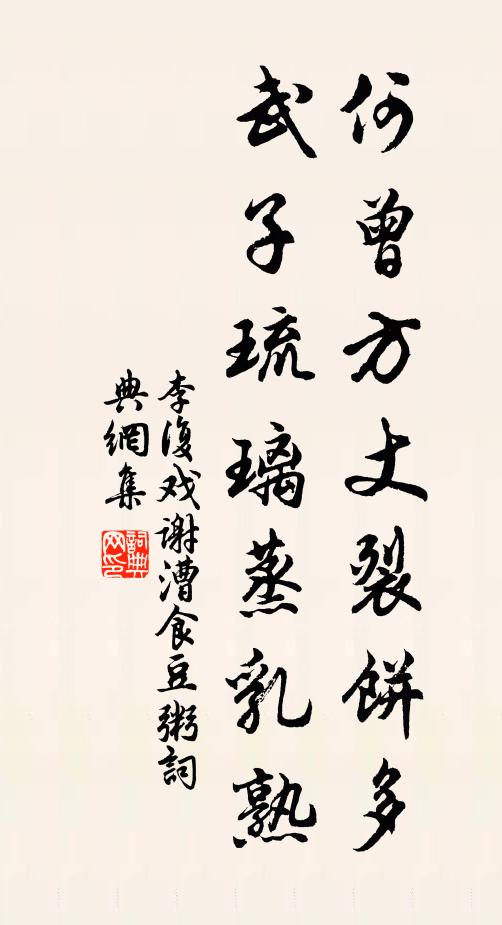 何曾方丈裂餅多
武子琉璃蒸乳熟
李復戏谢漕食豆粥詞
典網集
詞典网印